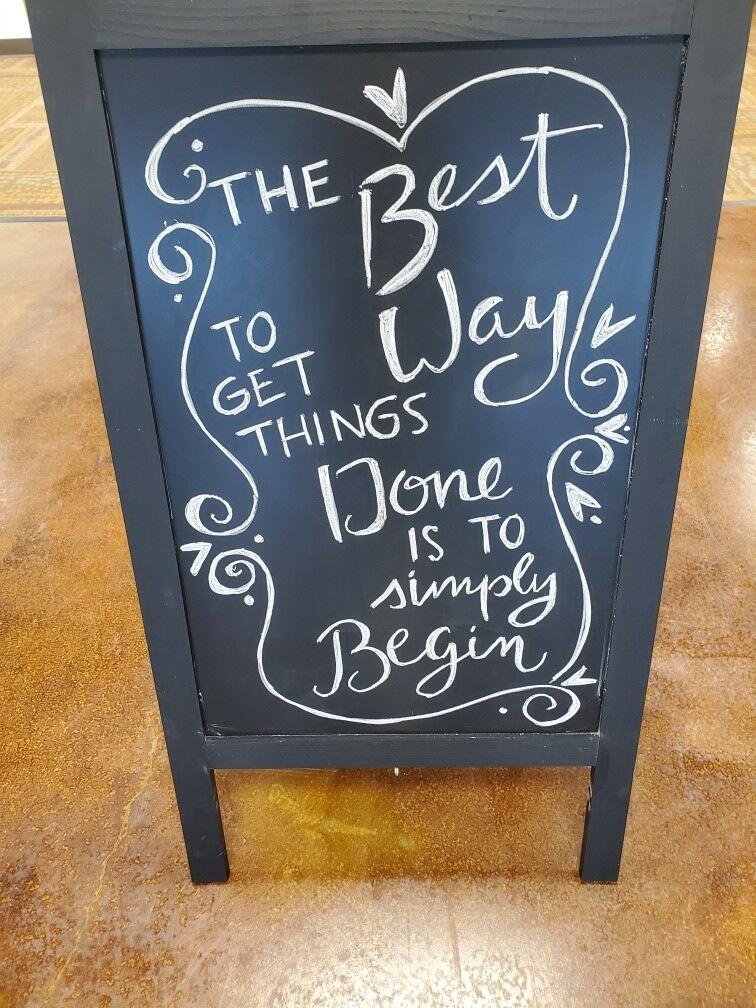 THE Best
Way
TO
GET
THINGS
Done
IS TO
simply
Begin